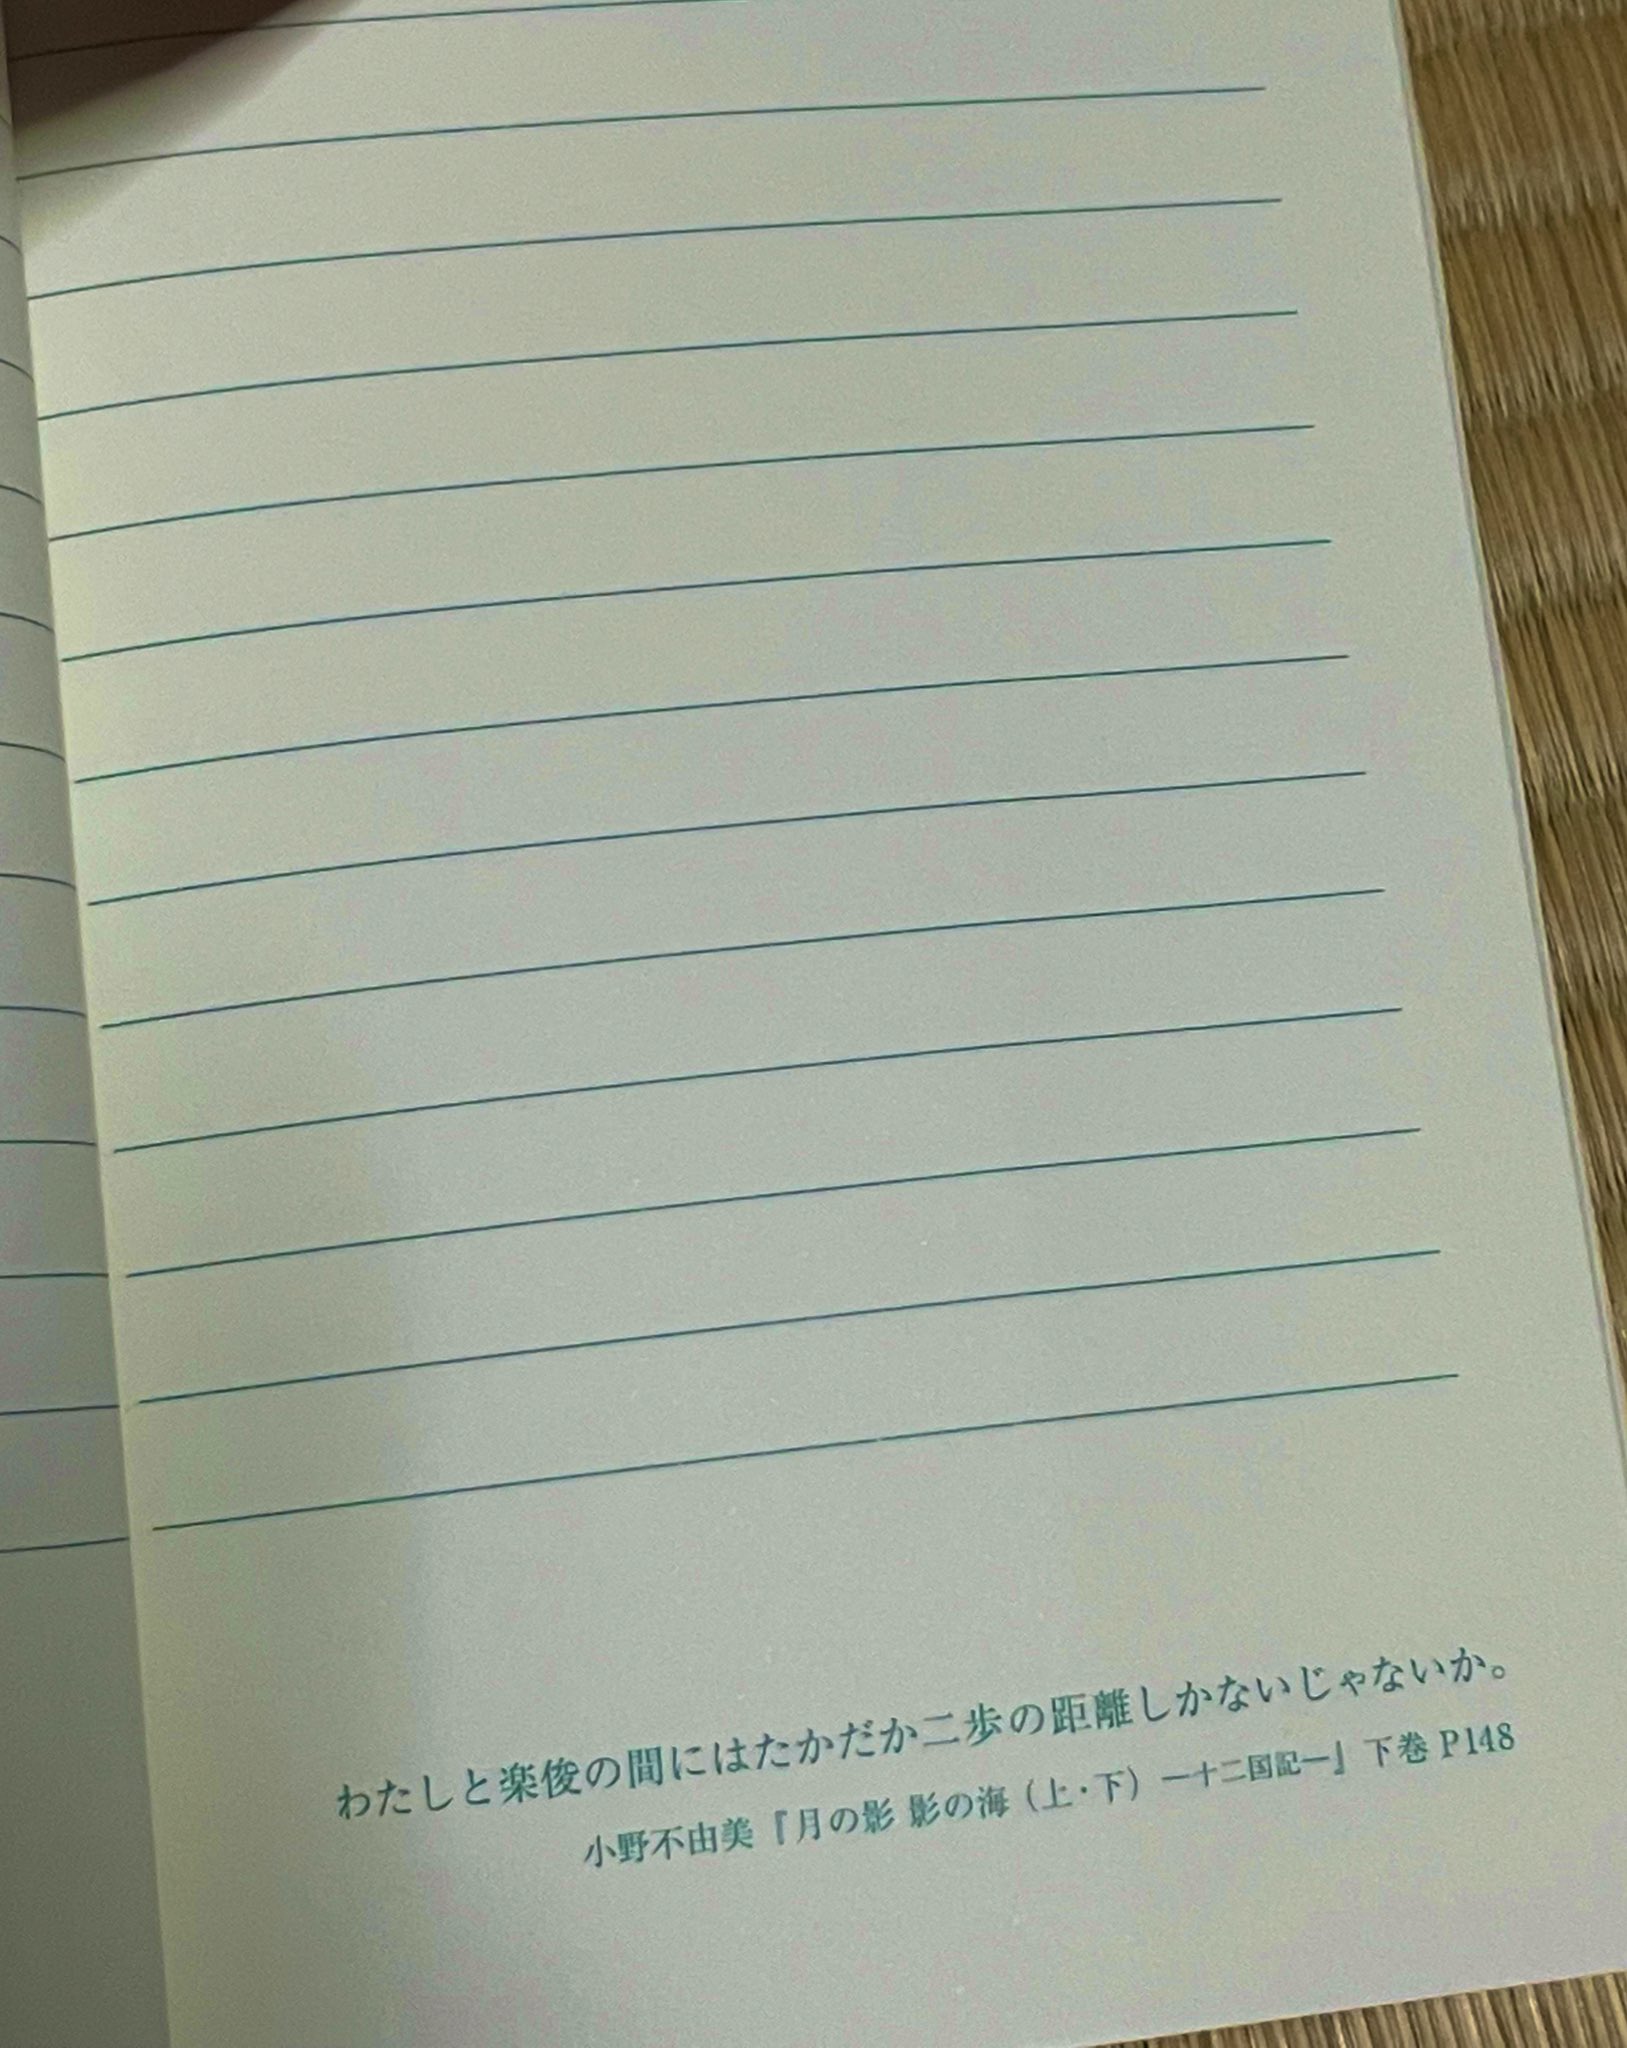 わたしと楽俊の間にはたかだか二歩の距離しかないじゃないか。
小野不由美『月の影 影の海（上・下）―十二国記―』下巻 P148